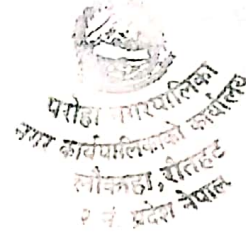 परोहा नगरपालिका
नगर कार्यपालिकाको कार्यालय
लौकहा, रौतहट
२ नं. प्रदेश नेपाल